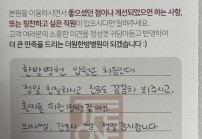 본원을 이용하시면서 좋으셨던 점이나 개선되었으면 하는 사항,
또는 칭찬하고 싶은 직원이 있으시다면 말씀해 주세요.
고객 여러분의 소중한 의견을 정성껏 귀담아듣고 반영하여
더 큰 만족을 드리는 더원한방병원이 되겠습니다 :)
한방병원 입원은 처음인데
정말 친절하시고 진료도 꼼꼼히 봐주시고,
환자를 위한
의사쌤, 간호사 쌤 정말 감사합니다